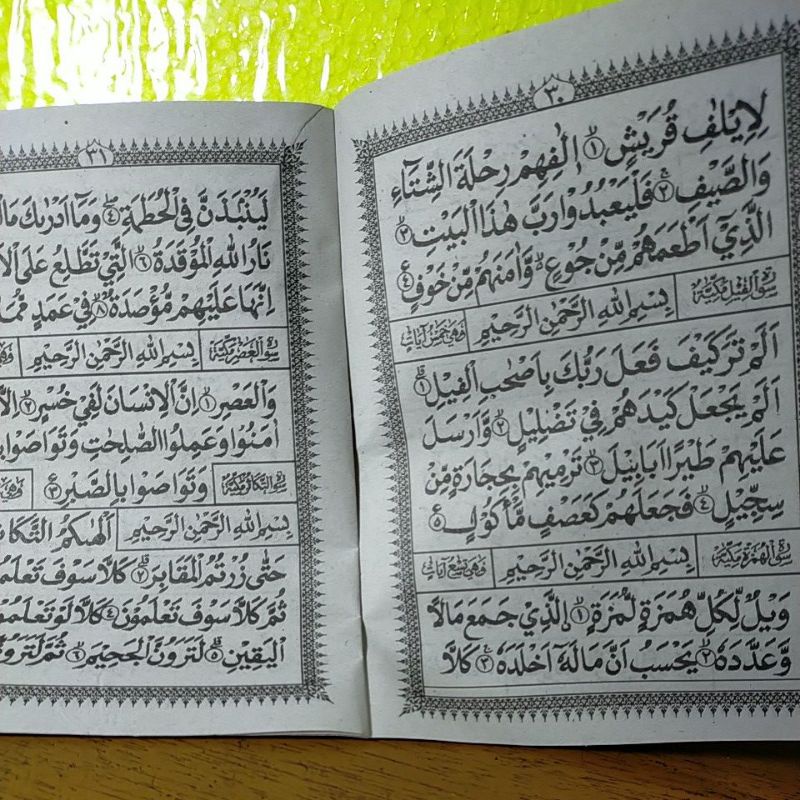 ٣٠
لِاِيْلٰفِ قُرَيْشٍ ١ اٖلٰفِهِمْ رِحْلَةَ الشِّتَآءِ
وَالصَّيْفِ ٢ فَلْيَعْبُدُوْا رَبَّ هٰذَا الْبَيْتِ ٣
الَّذِيْٓ اَطْعَمَهُمْ مِّنْ جُوْعٍ وَّاٰمَنَهُمْ مِّنْ خَوْفٍ ٤
سورة الفيل مكية بِسْمِ اللهِ الرَّحْمٰنِ الرَّحِيْمِ وهي خمس آيات
اَلَمْ تَرَكَيْفَ فَعَلَ رَبُّكَ بِاَصْحٰبِ الْفِيْلِ ١
اَلَمْ يَجْعَلْ كَيْدَهُمْ فِيْ تَضْلِيْلٍ ٢ وَّاَرْسَلَ
عَلَيْهِمْ طَيْرًا اَبَابِيْلَ ٣ تَرْمِيْهِمْ بِحِجَارَةٍ مِّنْ
سِجِّيْلٍ ٤ فَجَعَلَهُمْ كَعَصْفٍ مَّأْكُوْلٍ ٥
سورة الهمزة مكية بِسْمِ اللهِ الرَّحْمٰنِ الرَّحِيْمِ وهي تسع آيات
وَيْلٌ لِّكُلِّ هُمَزَةٍ لُّمَزَةٍ ١ اِلَّذِيْ جَمَعَ مَالًا
وَّعَدَّدَهٗ ٢ يَحْسَبُ اَنَّ مَالَهٗٓ اَخْلَدَهٗ ٣ كَلَّا
٣١
لَيُنْۢبَذَنَّ فِى الْحُطَمَةِ ٤ وَمَآ اَدْرٰىكَ
نَارُ اللهِ الْمُوْقَدَةُ ٦ الَّتِيْ تَطَّلِعُ عَلَى
اِنَّهَا عَلَيْهِمْ مُّؤْصَدَةٌ ٨ فِيْ عَمَدٍ
سورة العصر مكية بِسْمِ اللهِ الرَّحْمٰنِ الرَّحِيْمِ
وَالْعَصْرِ ١ اِنَّ الْاِنْسَانَ لَفِيْ خُسْرٍ ٢
اٰمَنُوْا وَعَمِلُوا الصّٰلِحٰتِ وَتَوَاصَوْا
وَتَوَاصَوْا بِالصَّبْرِ ٣ سورة التكاثر مكية
بِسْمِ اللهِ الرَّحْمٰنِ الرَّحِيْمِ اَلْهٰىكُمُ
حَتّٰى زُرْتُمُ الْمَقَابِرَ ٢ كَلَّا سَوْفَ
ثُمَّ كَلَّا سَوْفَ تَعْلَمُوْنَ ٤ كَلَّا لَوْ
الْيَقِيْنِ ٥ لَتَرَوُنَّ الْجَحِيْمَ ٦ ثُمَّ